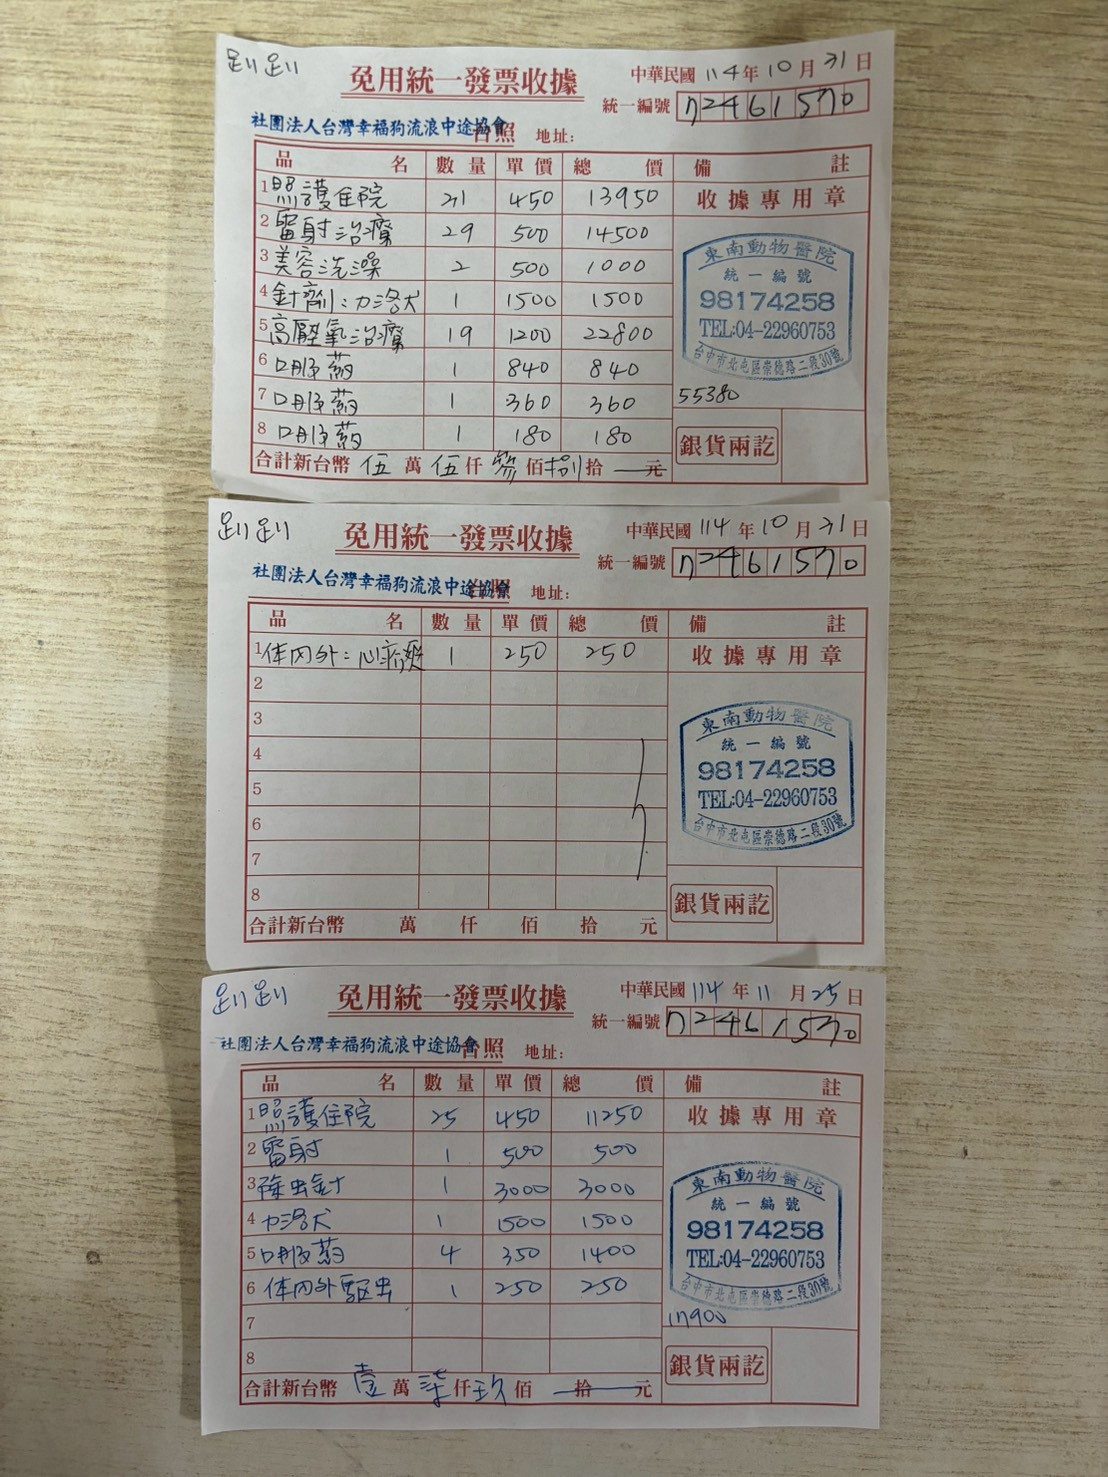 趴趴
免用統一發票收據
中華民國 114年10月31日
統一編號 72461570
社團法人台灣幸福狗流浪中途協會 台照 地址:
品名 數量 單價 總價 備註
1 照護住院 31 450 13950 收據專用章
2 雷射治療 29 500 14500
3 美容洗澡 2 500 1000
4 針劑:力洛犬 1 1500 1500
5 高壓氧治療 19 1200 22800
6 口服葯 1 840 840
7 口服葯 1 360 360
8 口服葯 1 180 180
東南動物醫院
統一編號
98174258
TEL:04-22960753
台中市北屯區崇德路二段30號
55380
銀貨兩訖
合計新台幣 伍萬伍仟參佰捌拾元
趴趴
免用統一發票收據
中華民國 114年10月31日
統一編號 72461570
社團法人台灣幸福狗流浪中途協會 台照 地址:
品名 數量 單價 總價 備註
1 体内外:心疥爽 1 250 250 收據專用章
2
3
4
5
6
7
8
東南動物醫院
統一編號
98174258
TEL:04-22960753
台中市北屯區崇德路二段30號
銀貨兩訖
合計新台幣 萬 仟 佰 拾 元
趴趴
免用統一發票收據
中華民國 114年11月25日
統一編號 72461570
社團法人台灣幸福狗流浪中途協會 台照 地址:
品名 數量 單價 總價 備註
1 照護住院 25 450 11250 收據專用章
2 雷射 1 500 500
3 除虫針 1 3000 3000
4 力洛犬 1 1500 1500
5 口服葯 4 350 1400
6 体内外驅虫 1 250 250
7
8
東南動物醫院
統一編號
98174258
TEL:04-22960753
台中市北屯區崇德路二段30號
17900
銀貨兩訖
合計新台幣 壹萬柒仟玖佰拾元